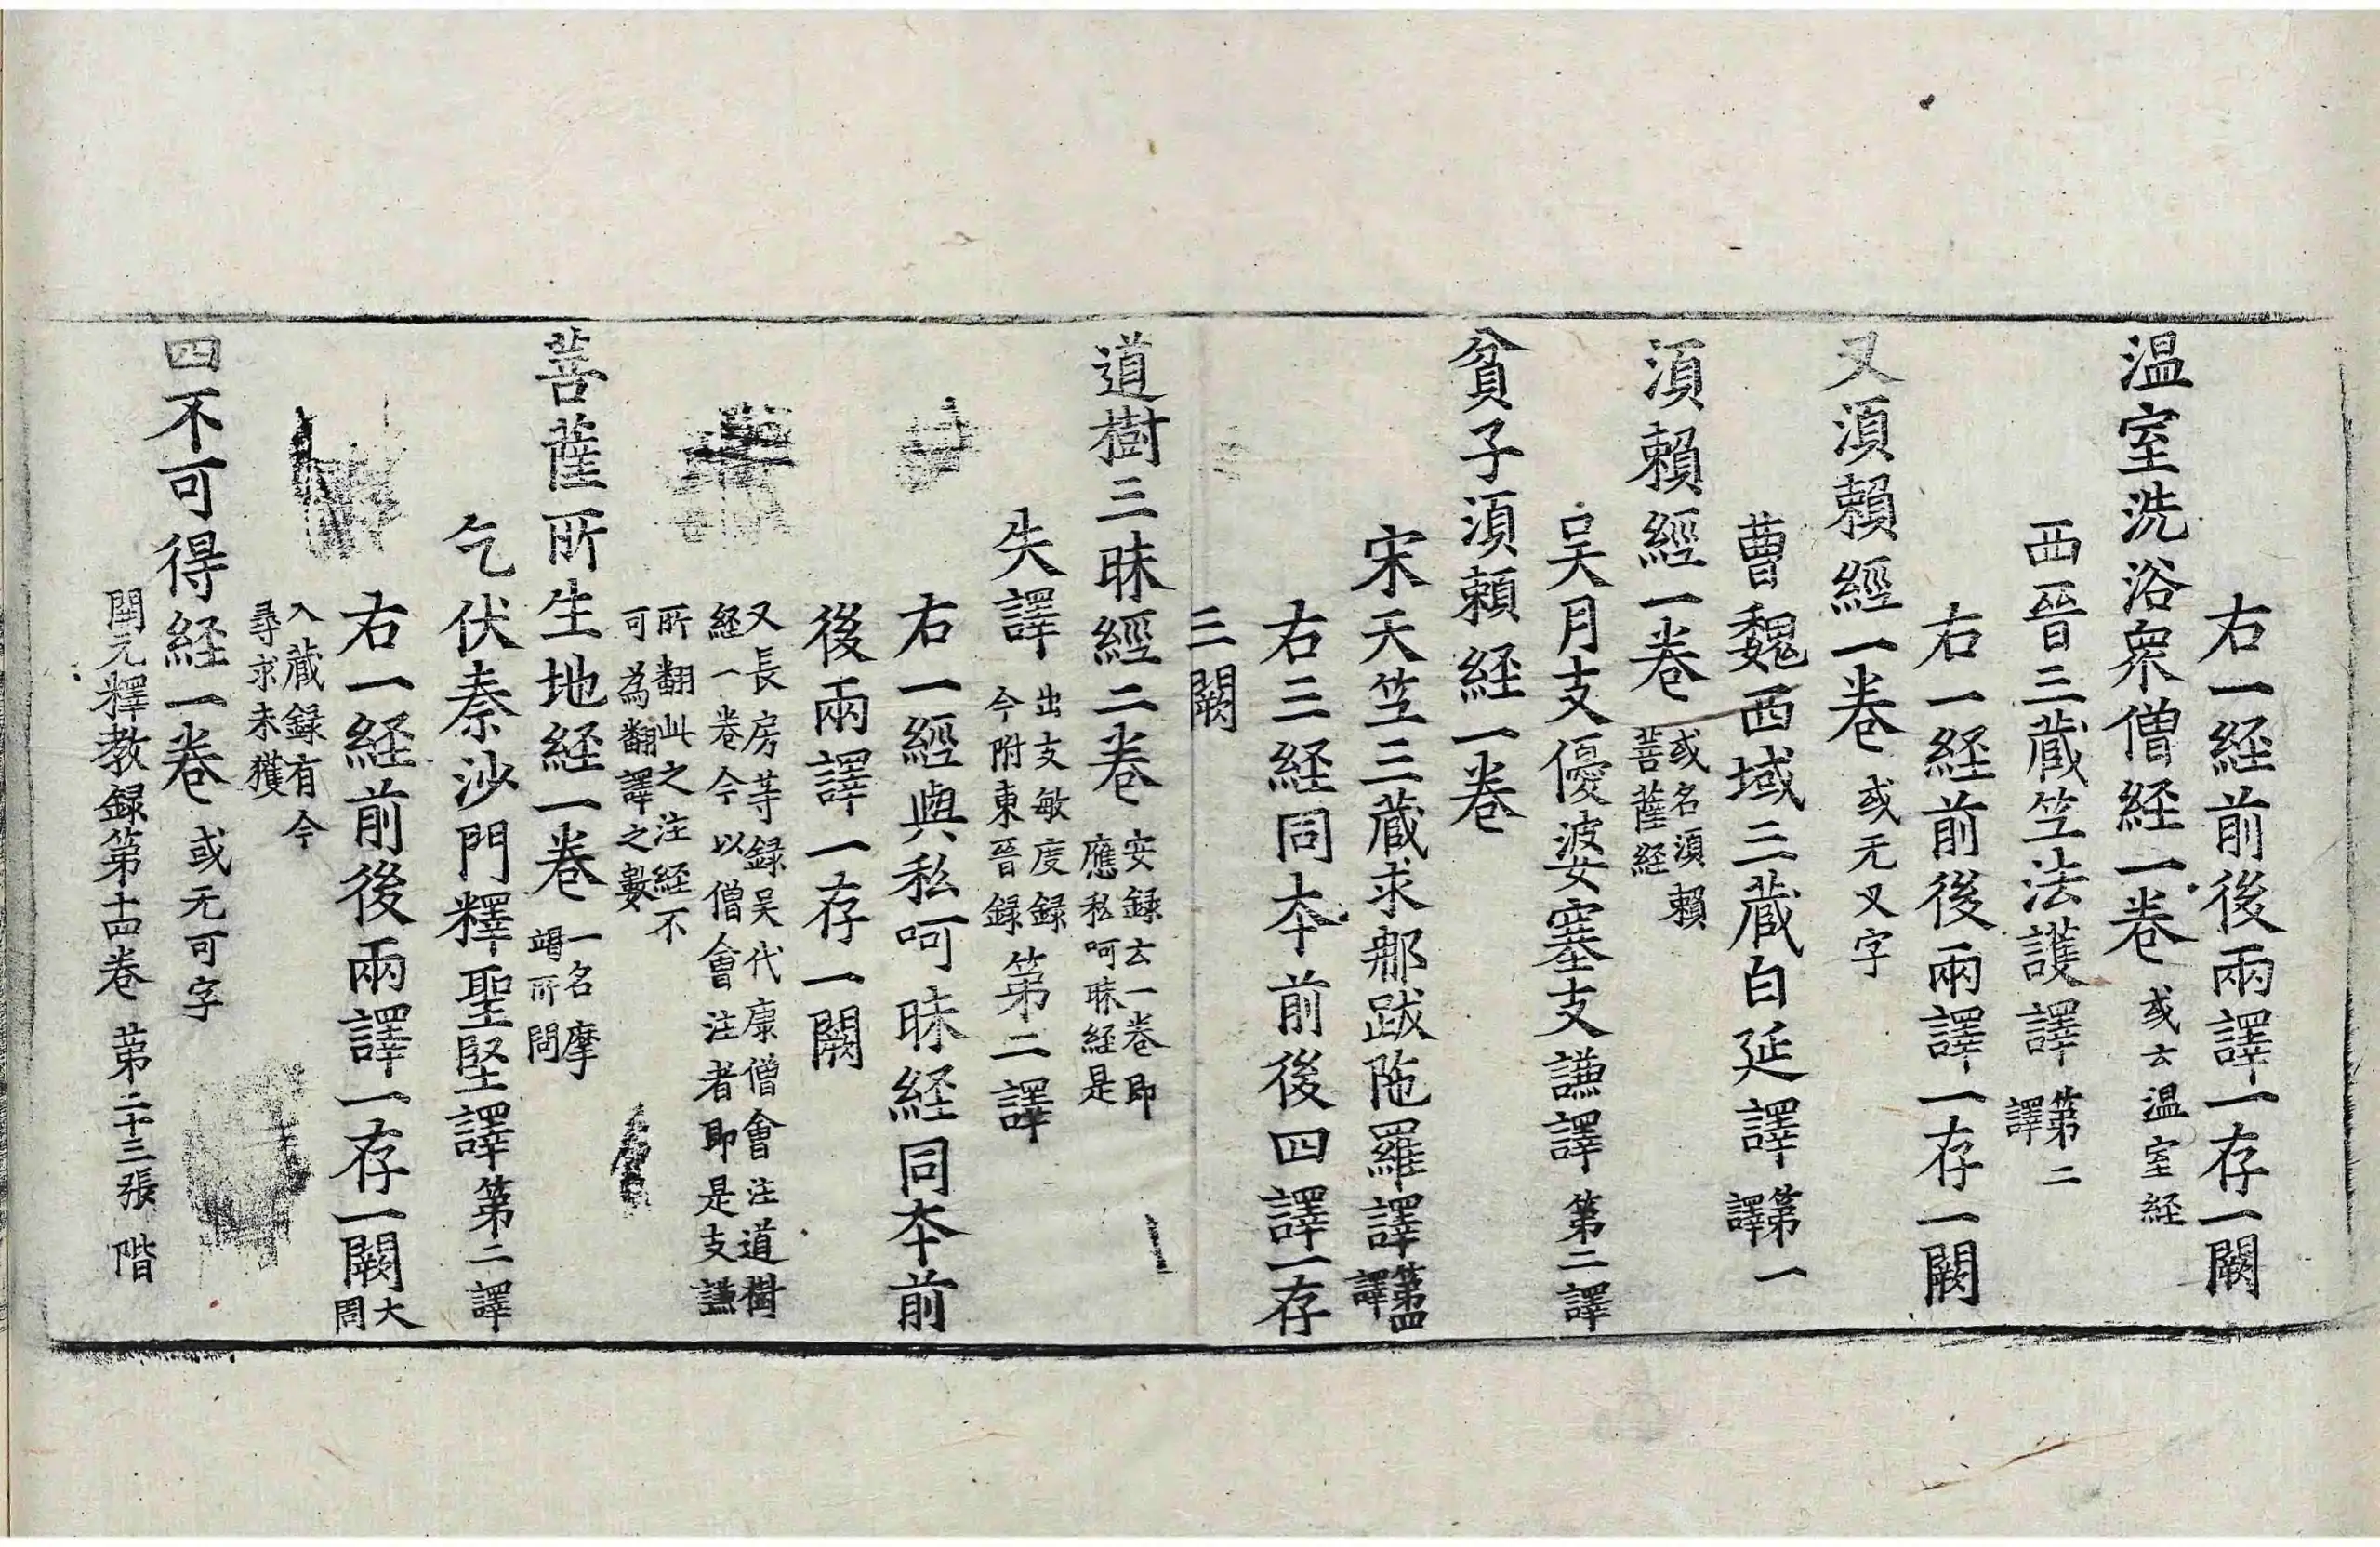 右一経前後兩譯一存一闕
温室洗浴衆僧経一卷 或云温室経
西晉三藏竺法護譯 第二譯
右一経前後兩譯一存一闕
叉湏賴經一卷 或无叉字
曹魏西域三藏白延譯 第一譯
湏賴經一卷 或名湏賴菩薩経
吴月支優婆塞支謙譯 第二譯
貧子湏賴経一卷
宋天竺三藏求那跋陁羅譯 第四譯
右三経同夲前後四譯一存
三闕
道樹三昧經二卷 安録云一卷即應私呵昧経是
失譯 出支敏度録今附東晉録 第二譯
右一經與私呵昧経同夲前
後兩譯一存一闕
又長房等録吴代康僧會注道樹
経一卷今以僧會注者即是支謙
所翻此之注経不
可為翻譯之數
菩薩所生地経一卷 一名摩竭所問
乞伏秦沙門釋聖堅譯 第二譯
右一経前後兩譯一存一闕 大周
入藏録有今
尋求未獲
四不可得経一卷 或无可字
開元釋教録第十四卷 第二十三張 階